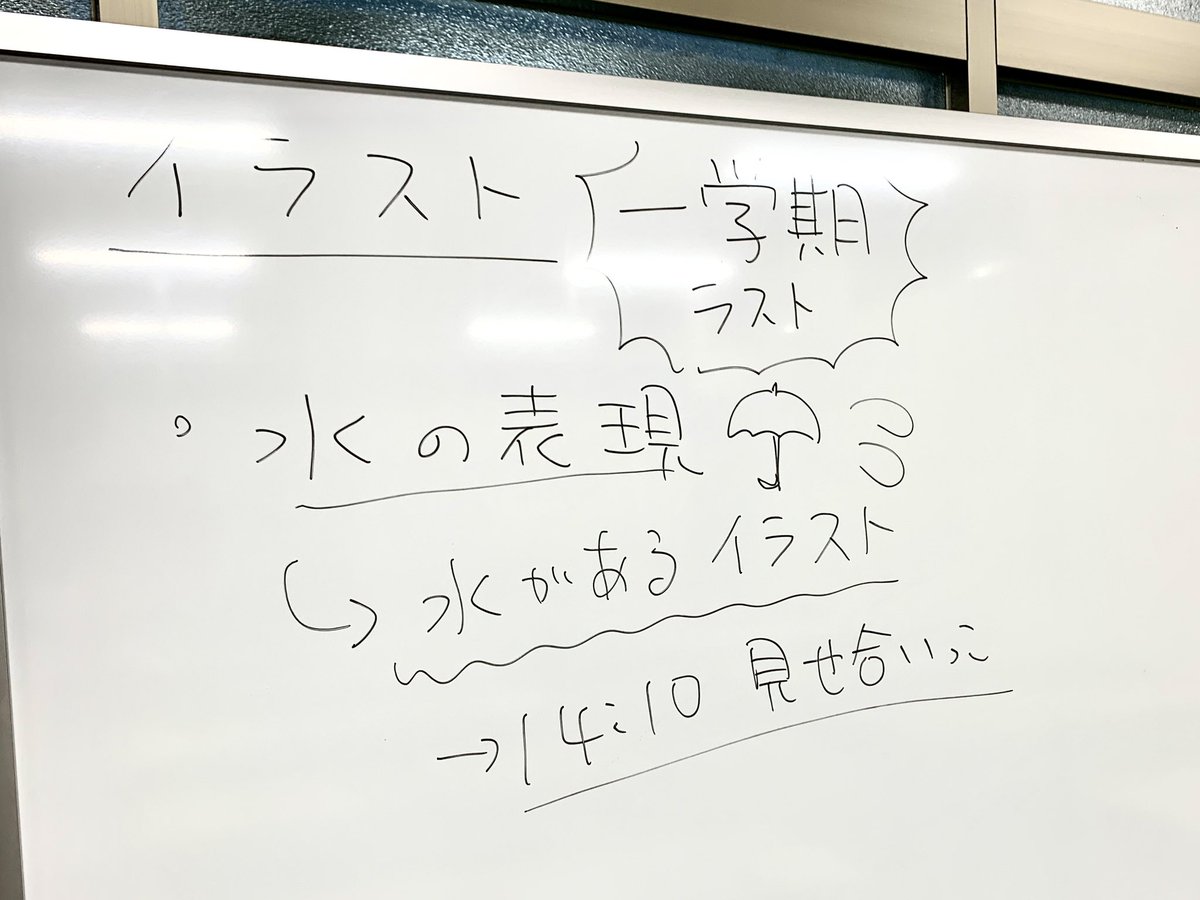 イラスト
一学期
ラスト
・水の表現
↳水があるイラスト
→14:10 見せ合いっこ